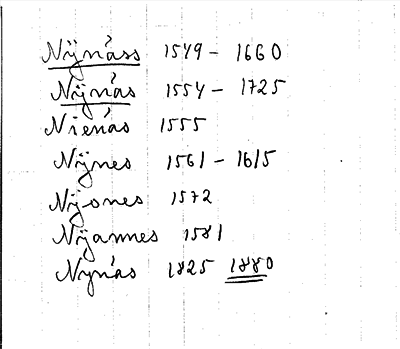 Nÿnäss 1549 - 1660
Nÿnäs 1554 - 1725
Nienäs 1555
Nÿnes 1561 - 1615
Nÿones 1572
Nÿannes 1581
Nynäs 1825 1880